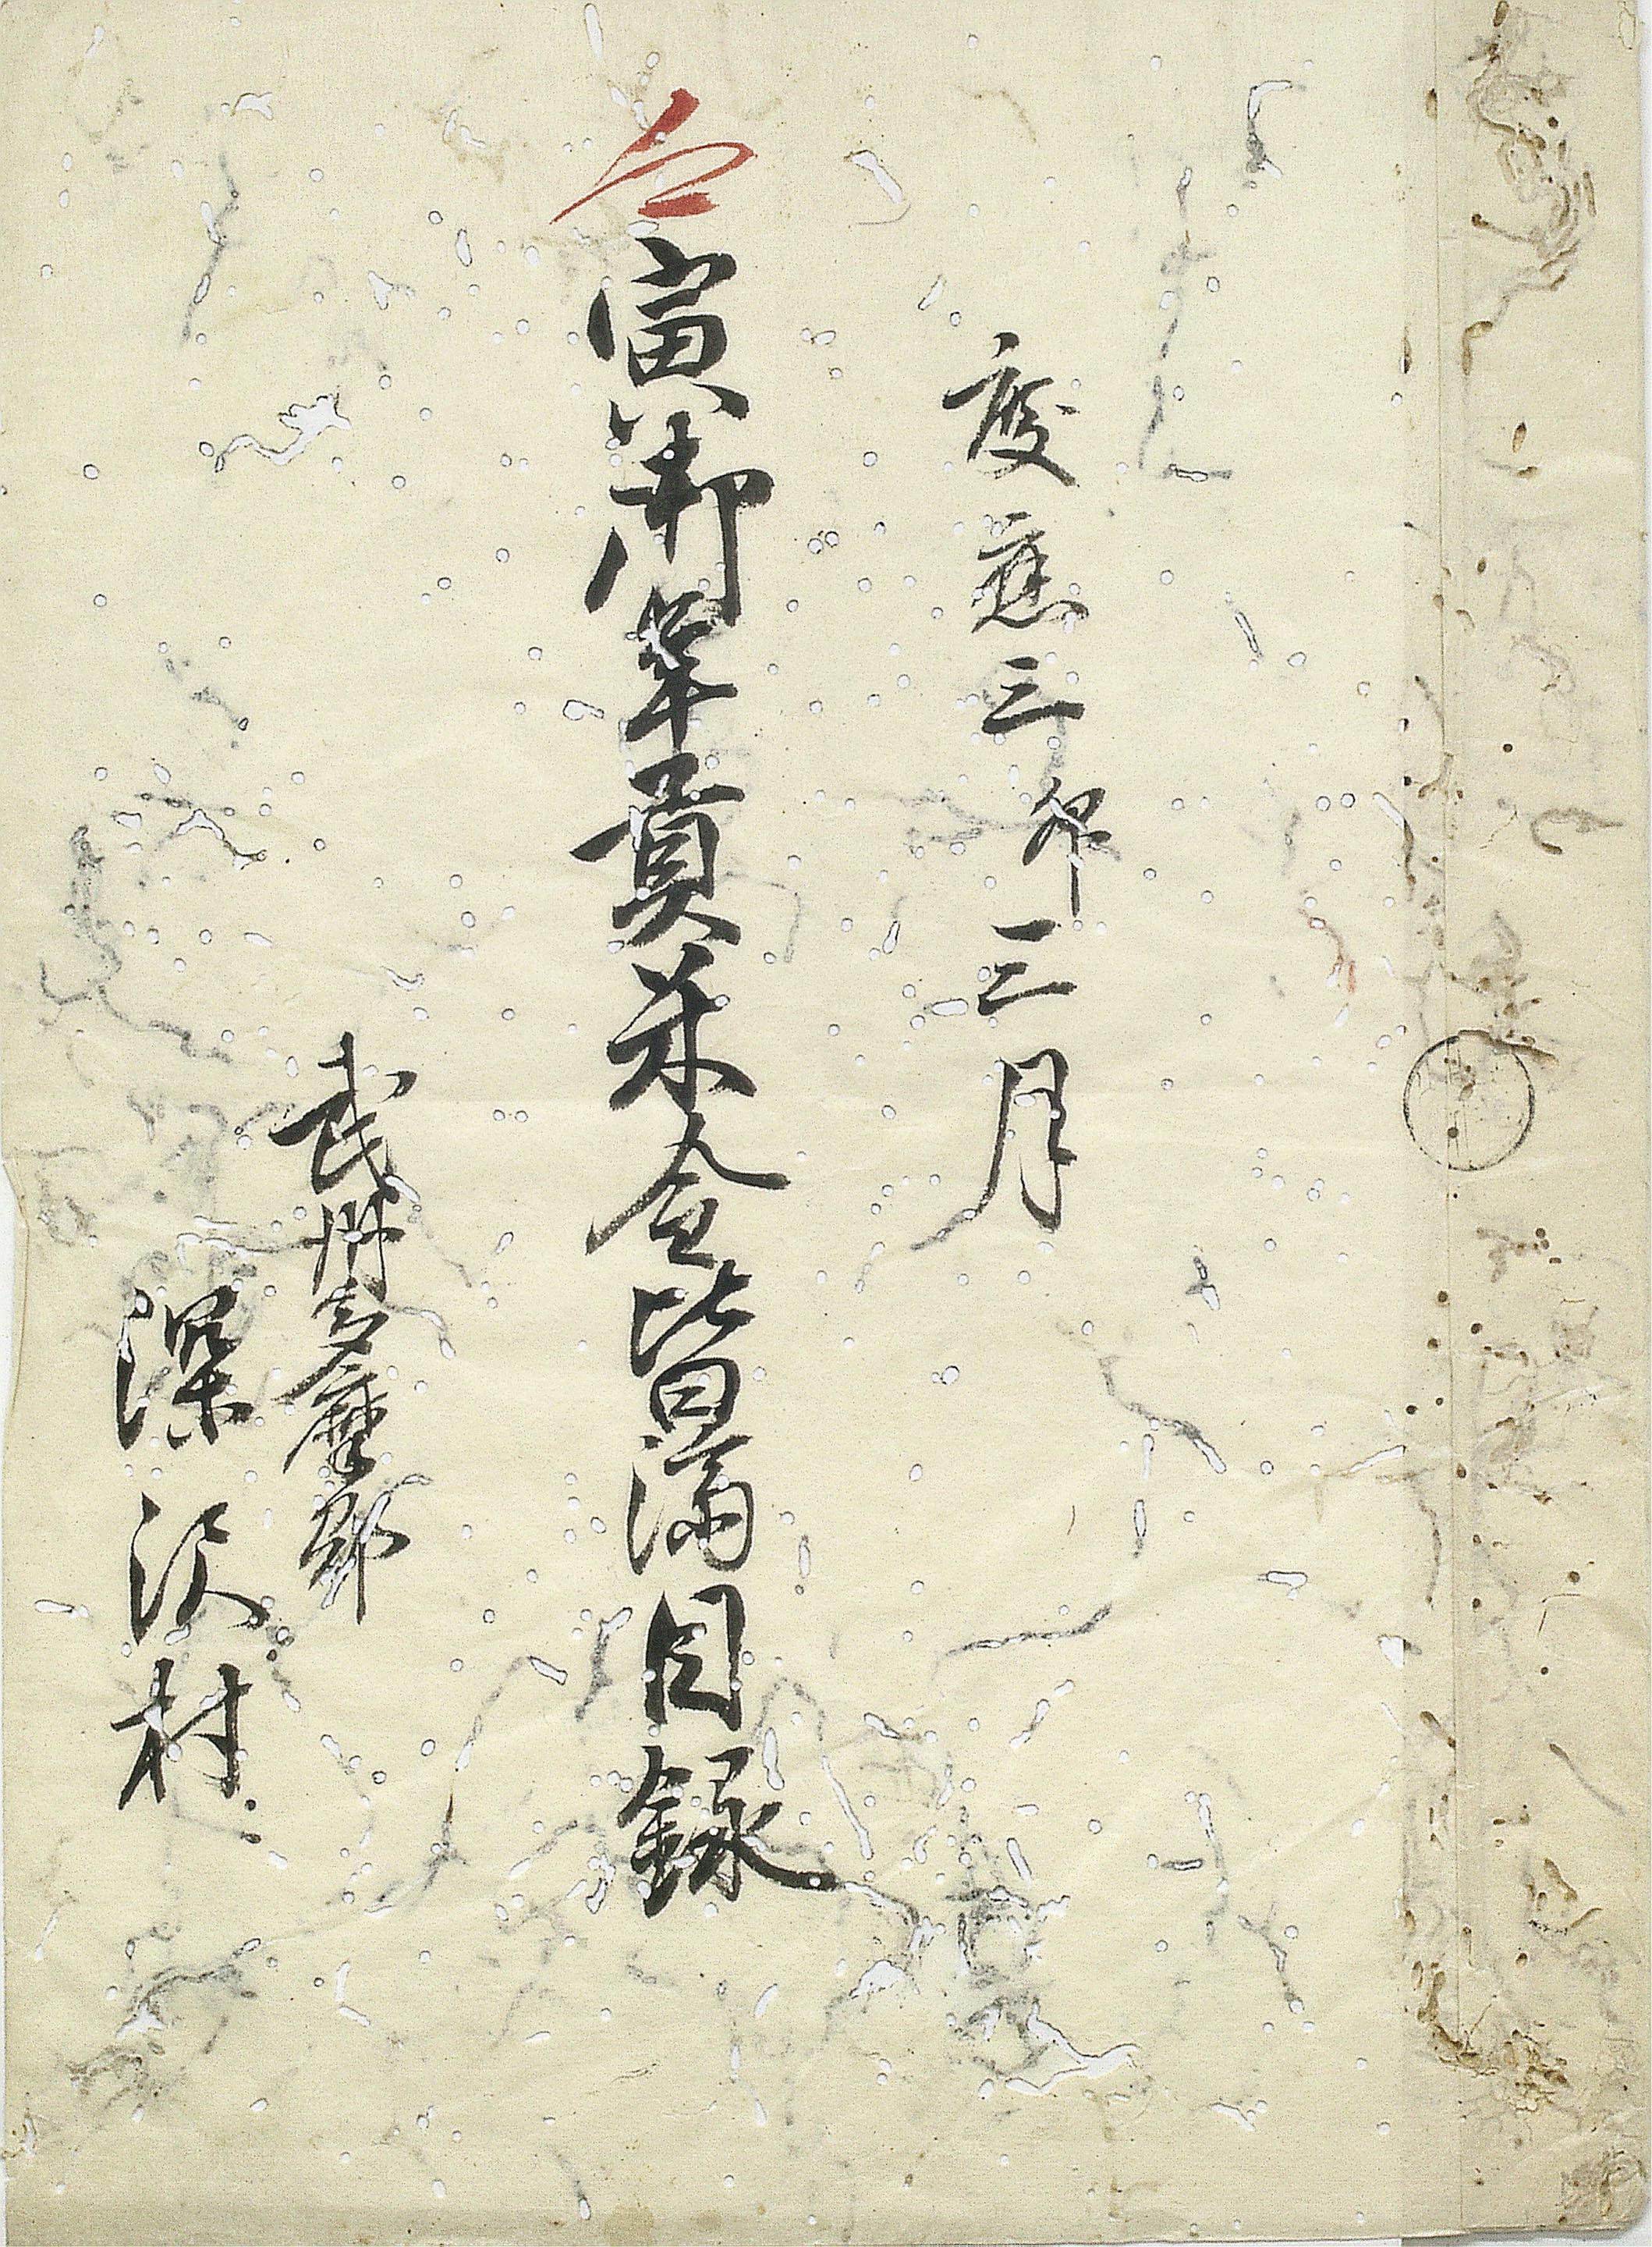 慶應三卯三月
合寅御年貢米金皆済目録
武州多摩郡
深沢村